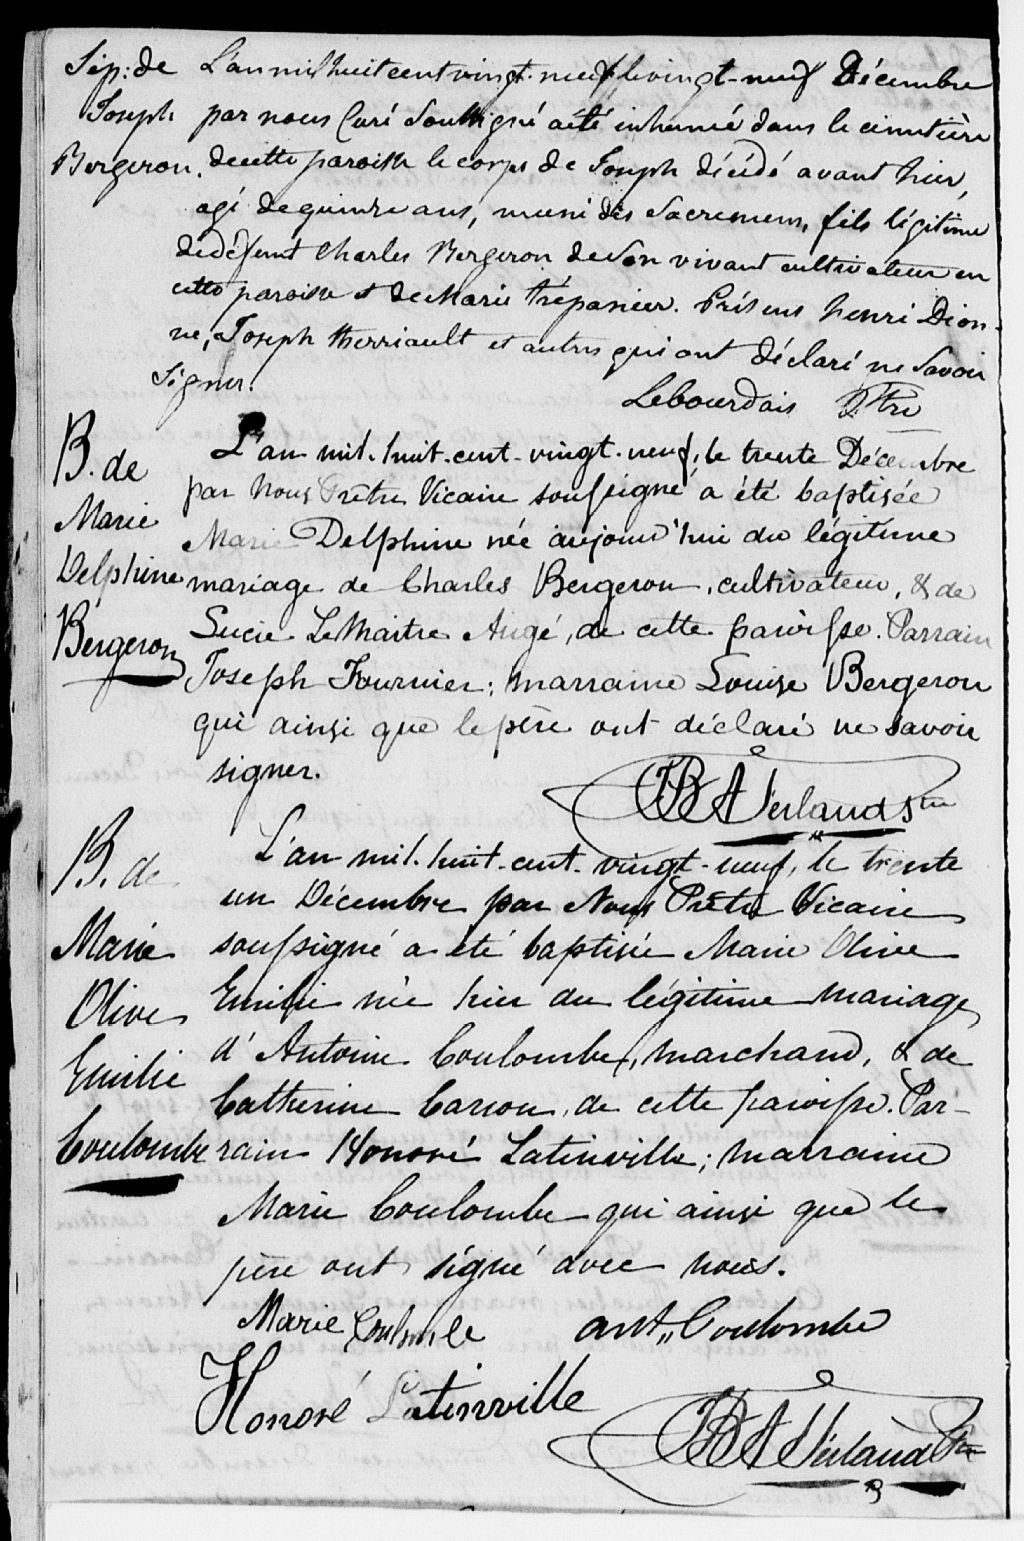 Sép: de
Joseph
Bergeron.
L'an mil huit cent vingt-neuf le vingt-neuf Décembre
par nous Curé Soussigné a été inhumé dans le cimetière
de cette paroisse le corps de Joseph décédé avant hier,
agé de quinze ans, muni des Sacremens, fils légitime
de défunt Charles Bergeron de son vivant cultivateur en
cette paroisse et de Marie Trépanier. Présens henri Dion-
ne, Joseph Therriault et autres qui ont déclaré ne Savoir
Signer.
Lebourdais Ptre
B. de
Marie
Delphine
Bergeron
L'an mil-huit-cent-vingt-neuf, le trente Décembre
par Nous Prêtre Vicaire soussigné a été baptisée
Marie Delphine née aujourd'hui du légitime
mariage de Charles Bergeron, cultivateur, & de
Lucie LeMaitre Augé, de cette paroisse. Parrain
Joseph Fournier; marraine Louise Bergeron
qui ainsi que le père ont déclaré ne savoir
signer.
B. de
Marie
Olive
Emilie
Coulombe
L'an mil-huit-cent-vingt-neuf, le trente
un Décembre par Nous Prêtre Vicaire
soussigné a été baptisée Marie Olive
Emilie née hier du légitime mariage
d'Antoine Coulombe, marchand, & de
Catherine Carson, de cette paroisse. Par-
rain Honoré Latinville; marraine
Marie Coulombe qui ainsi que le
père ont signé avec nous.
Marie Coulombe ant,, Coulombe
Honoré Latinville